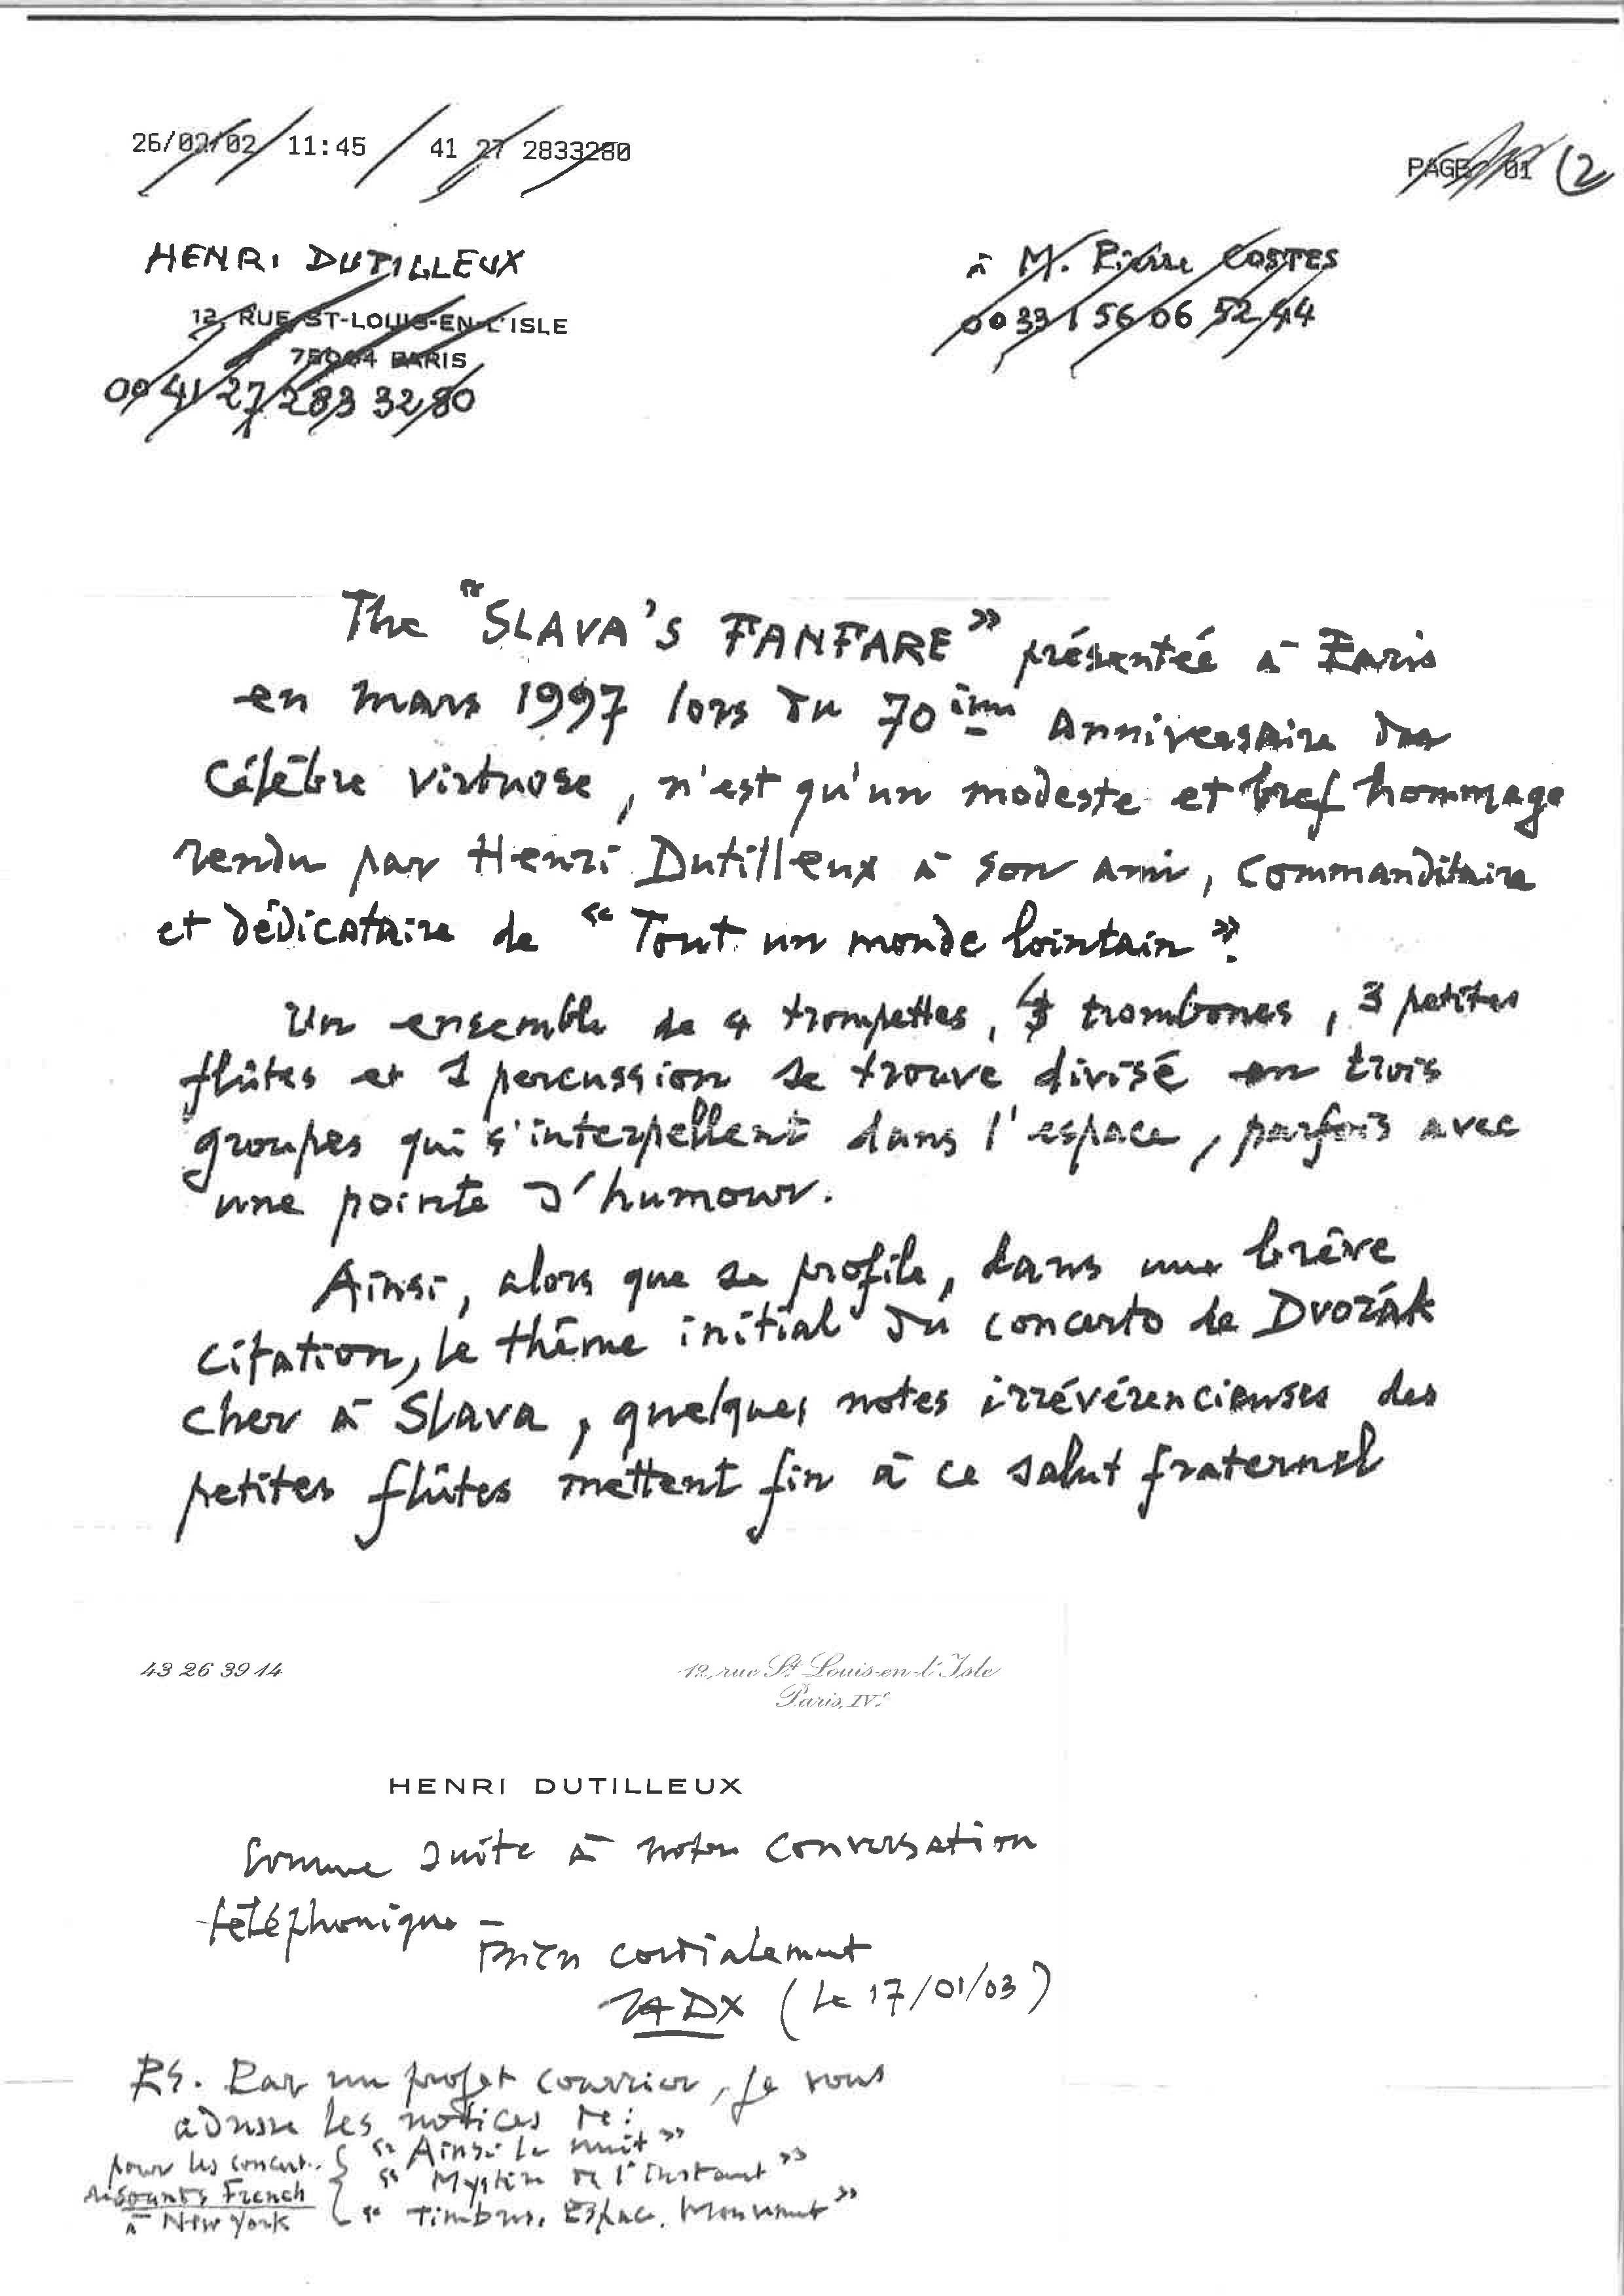 26/02/02 11:45 41 27 2833280 PAGE 01 (2
HENRI DUTILLEUX
12, RUE ST-LOUIS-EN-L'ISLE
75004 PARIS
00 41 27 283 32 80
à M. Pierre COSTES
00 33 1 56 06 52 44
The "SLAVA'S FANFARE" présentée à Paris
en mars 1997 lors du 70ième Anniversaire du
Célèbre virtuose, n'est qu'un modeste et bref hommage
rendu par Henri Dutilleux à son ami, Commanditaire
et dédicataire de "Tout un monde lointain".
Un ensemble de 4 trompettes, trombones, 3 petites
flûtes et 1 percussion se trouve divisé en trois
groupes qui s'interpellent dans l'espace, parfois avec
une pointe d'humour.
Ainsi, alors que se profile, dans une brève
citation, le thème initial du concerto de Dvorák
cher à Slava, quelques notes irrévérencieuses des
petites flûtes mettent fin à ce salut fraternel
43 26 39 14 12, rue St Louis-en-l'Isle
Paris, IVe
HENRI DUTILLEUX
Comme suite à notre conversation
téléphonique -
Bien cordialement
(le 17/01/03)
PS. Par un courrier, je vous
adresse les notices de:
pour les concerts "Ainsi la nuit"
Sounds French "Mystère de l'instant"
à New York "Timbres, Espace, Mouvement"